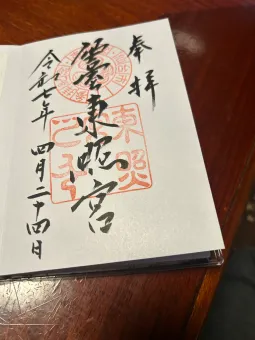 奉拝
東照宮
令和七年 四月二十四日
東照